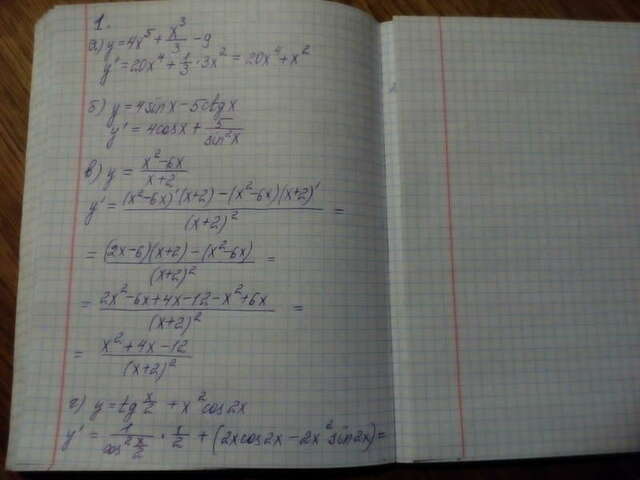 1.
а) y=4x⁵+x³/3-9
y'=20x⁴+1/3·3x²=20x⁴+x²
б) y=4sinx-5ctgx
y'=4cosx+5/sin²x
в) y=(x²-6x)/(x+2)
y'=((x²-6x)'(x+2)-(x²-6x)(x+2)')/(x+2)²=
=((2x-6)(x+2)-(x²-6x))/(x+2)²=
=(2x²-6x+4x-12-x²+6x)/(x+2)²=
=(x²+4x-12)/(x+2)²
г) y=tg x/2+x²cos2x
y'=1/cos²x/2·1/2+(2xcos2x-2x²sin2x)=